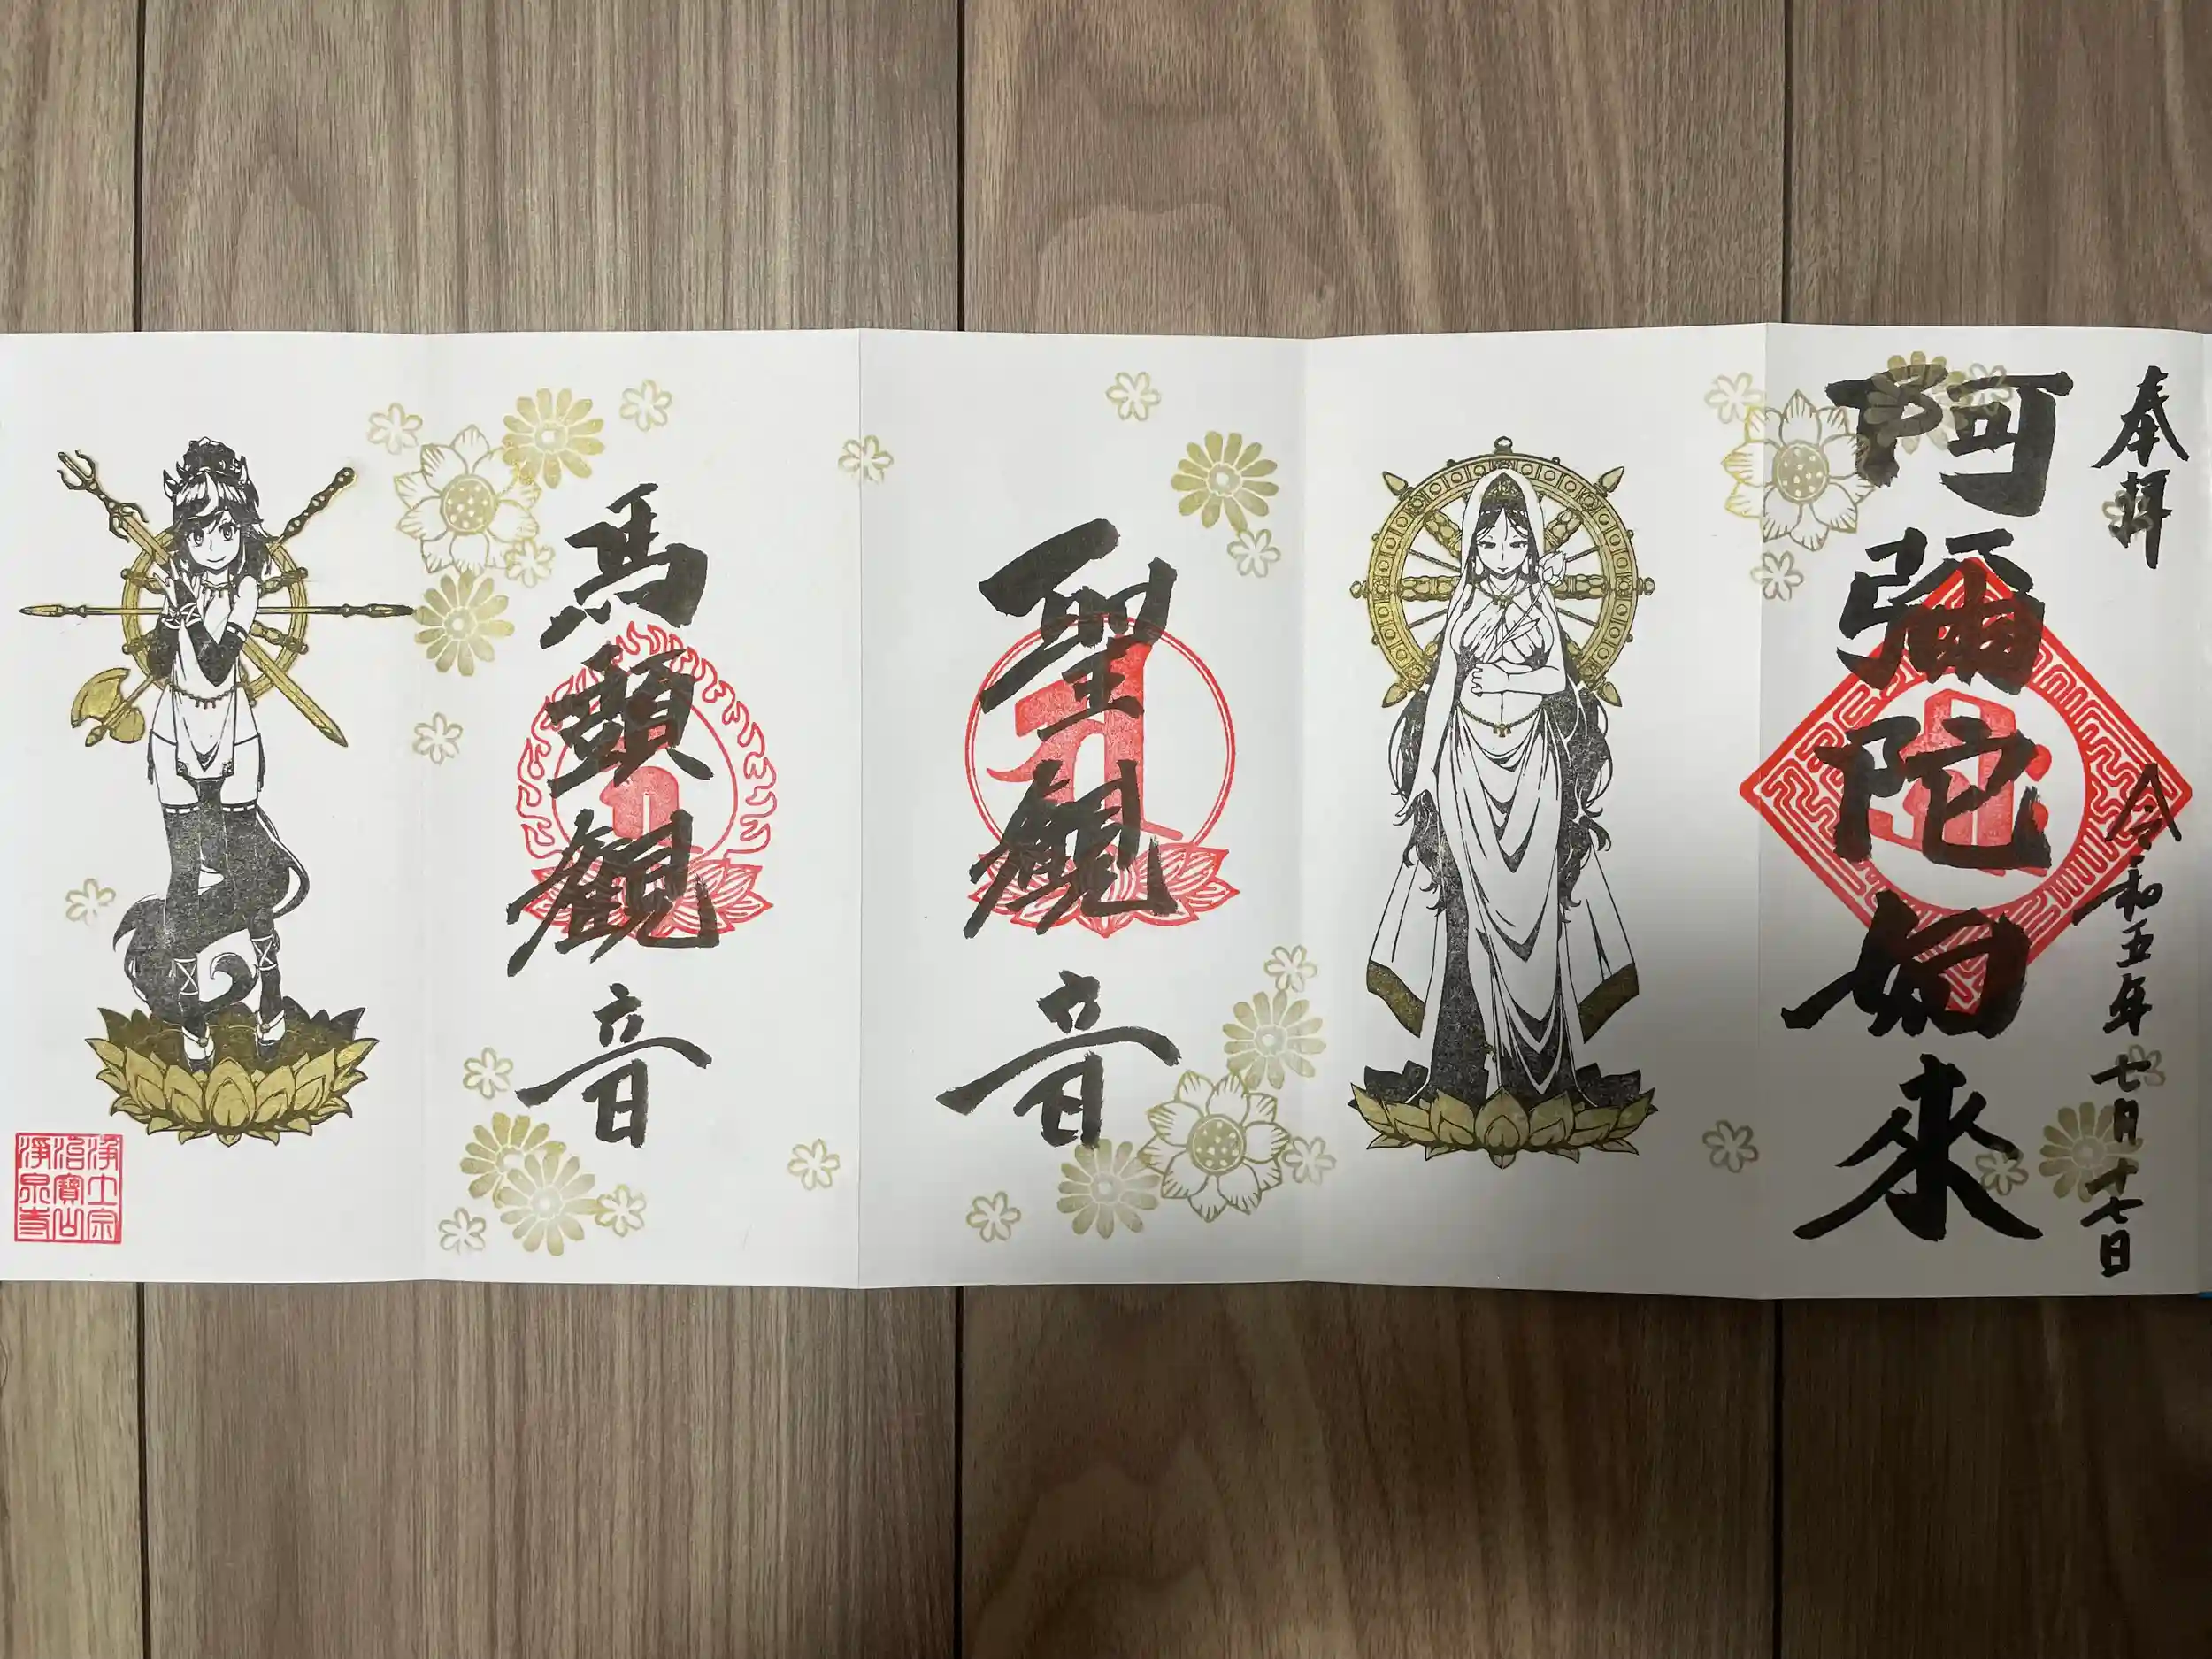 奉拝
令和五年七月十七日
阿彌陀如来
聖観音
馬頭観音
浄土宗
治寶山
淨泉寺